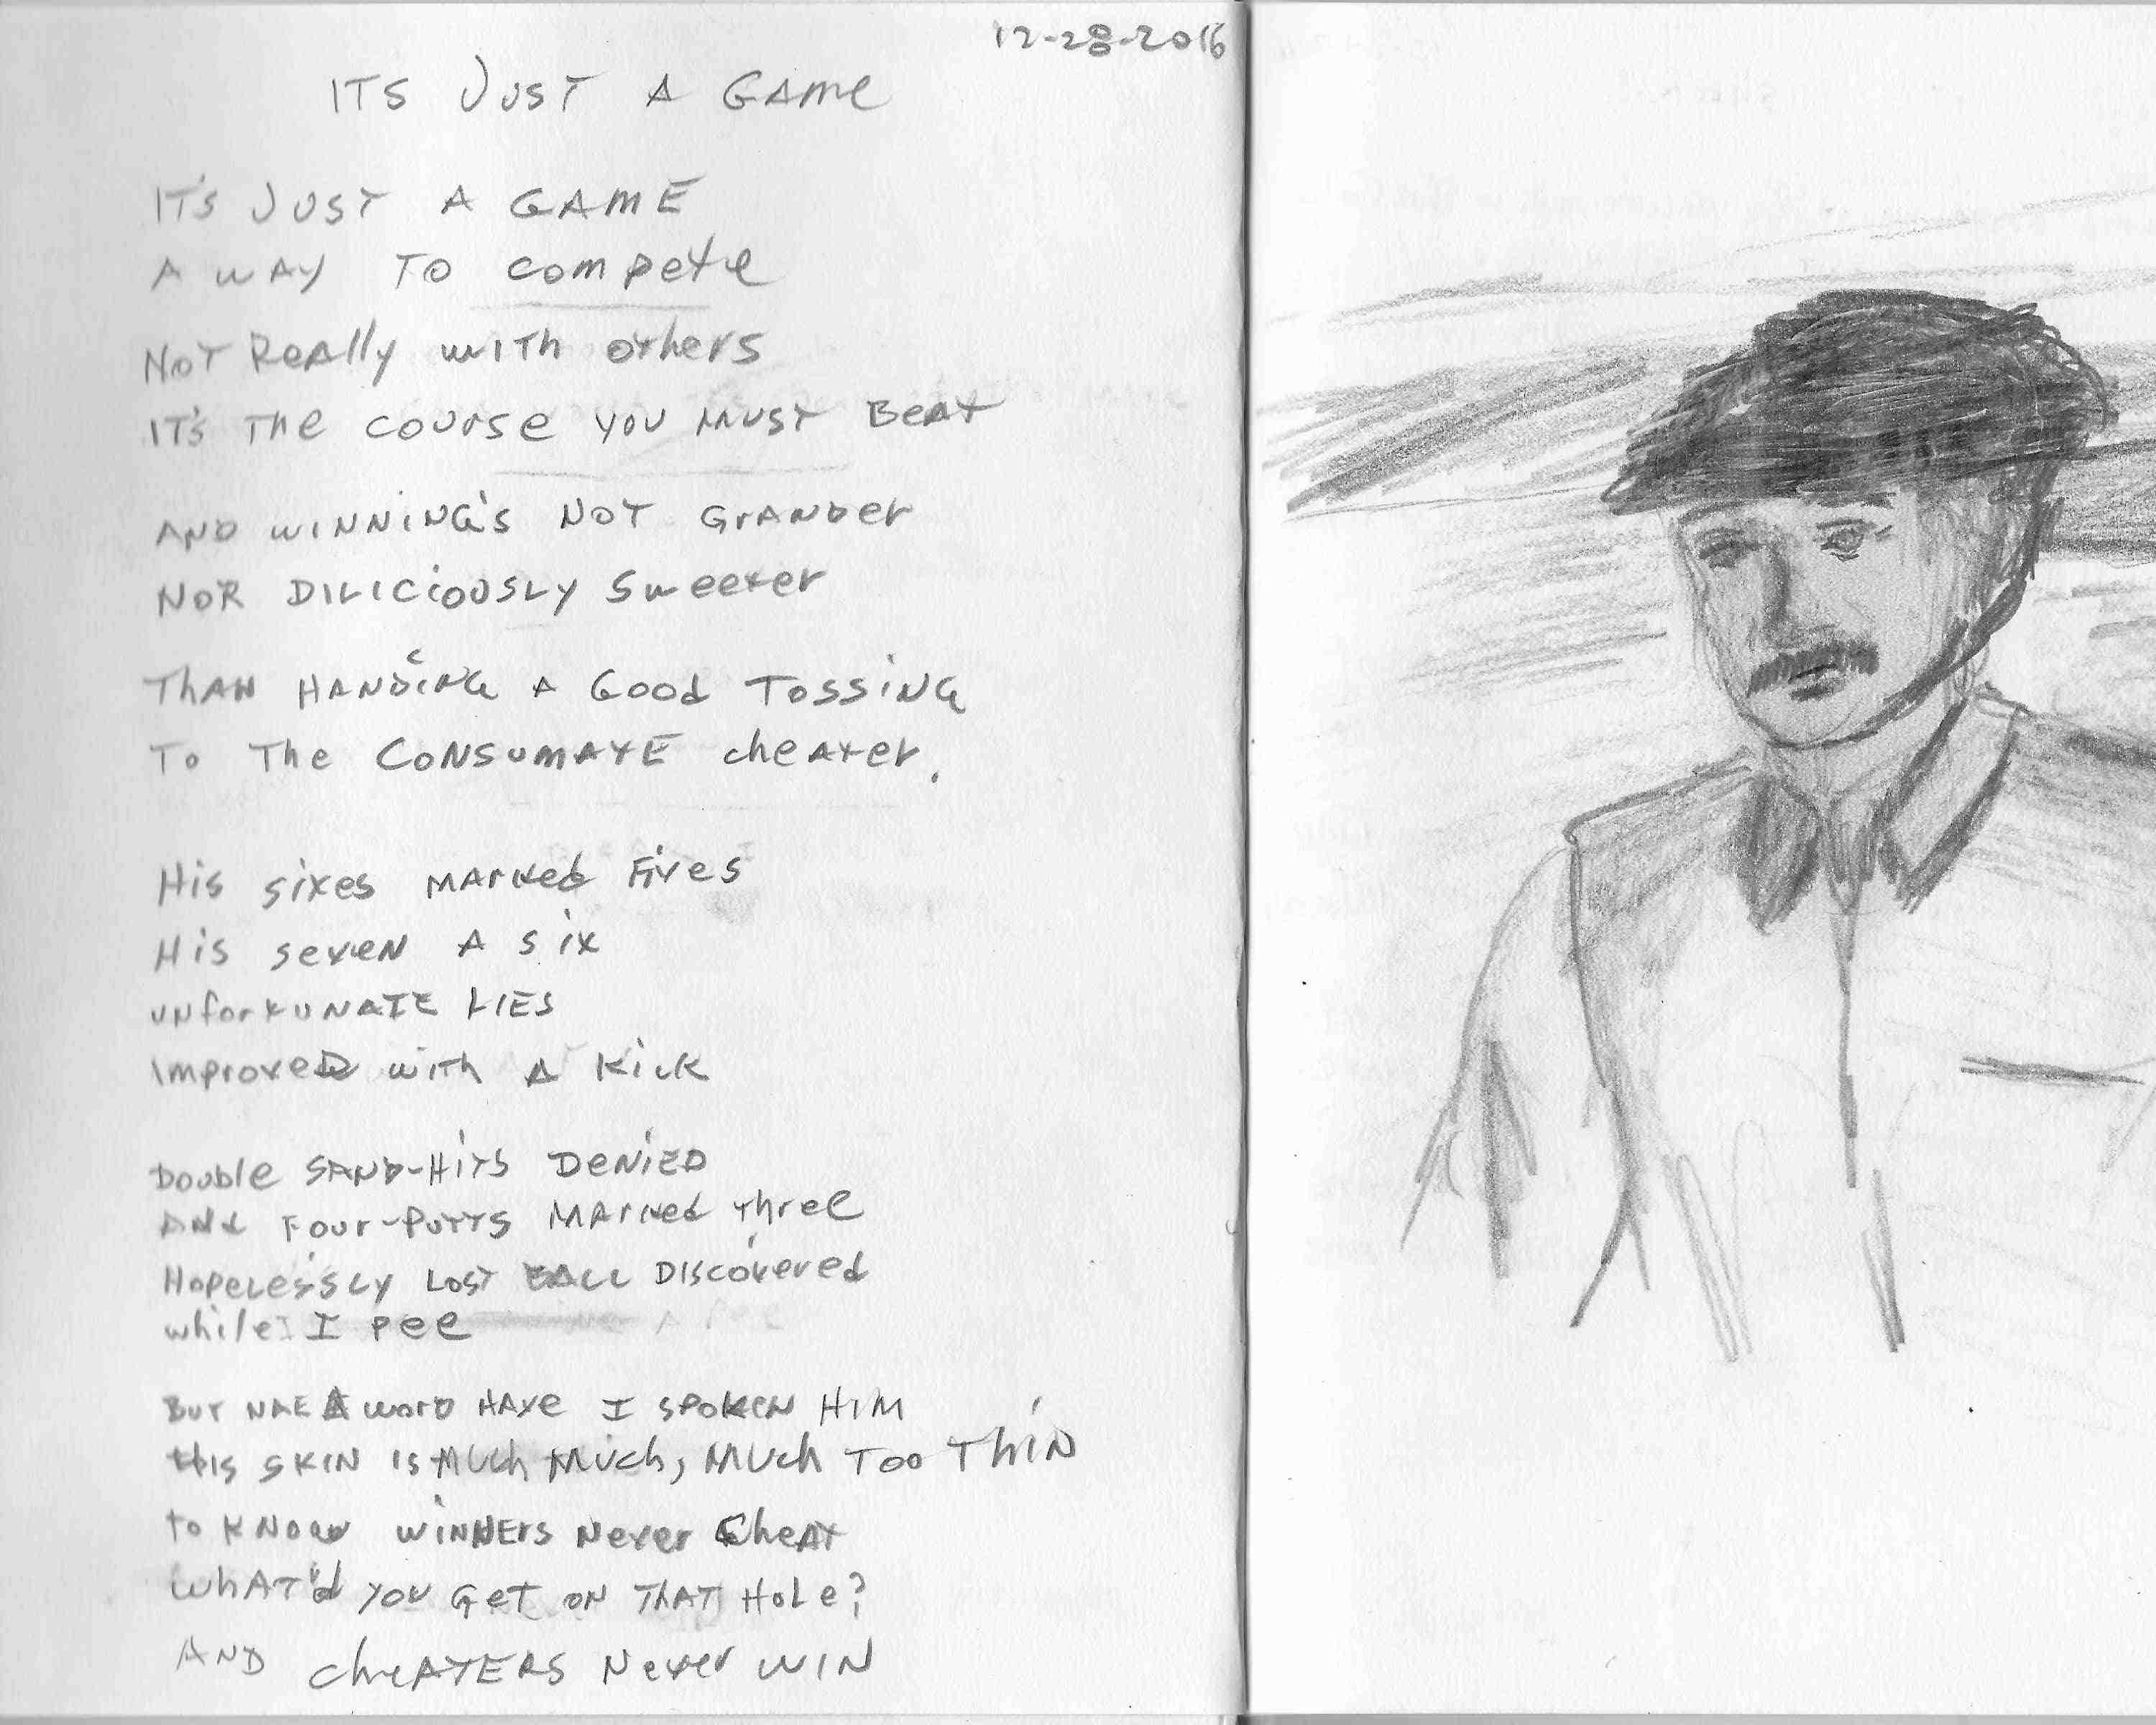 12-28-2016
ITS JUST A GAME
IT'S JUST A GAME
A WAY TO compete
NOT Really with others
IT'S The course you MUST BeAt
AND WINNING'S NOT GrANDer
NOR DILICIOUSLY Sweeter
ThAN HANDING A Good TOSSING
To The CONSUMATE cheater.
His sixes MARKed Fives
His seven A six
unfortunate LIES
Improved with A Kick
Double SAND-HITS DENIED
AND Four-PUTTS MARKed three
HopeLessLy LosT BALL Discovered
while I pee
BuT NAE A word HAve I spoken HIM
His SKIN is Much Much, Much Too Thin
to KNOW WINNERS Never Cheat
WhAT'd you GeT on THAT HoLe?
AND cheATERS Never WIN